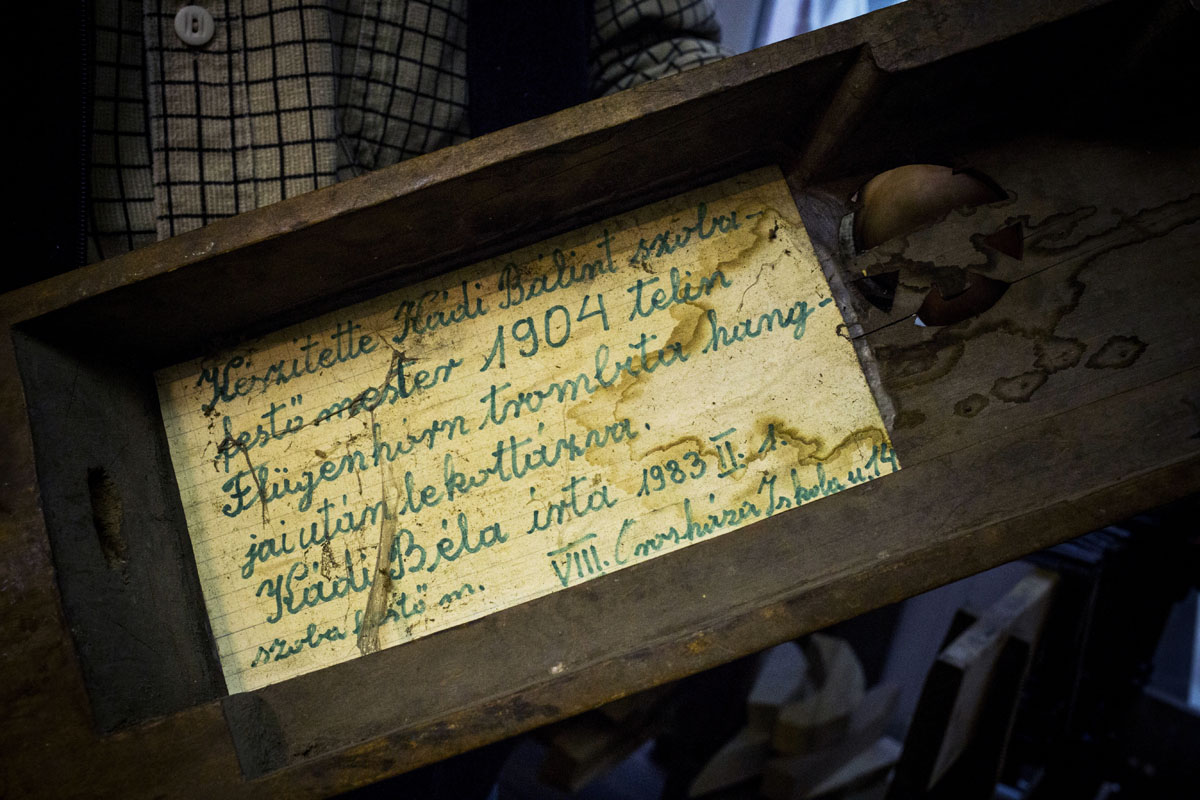 Készítette Kádi Bálint szoba-
festő mester 1904 telin
Flügenhorn trombita hang-
jai után lekottázva.
Kádi Béla irta 1983 II. 1.
szoba festő m. VIII. Orosháza Iskola u. 14